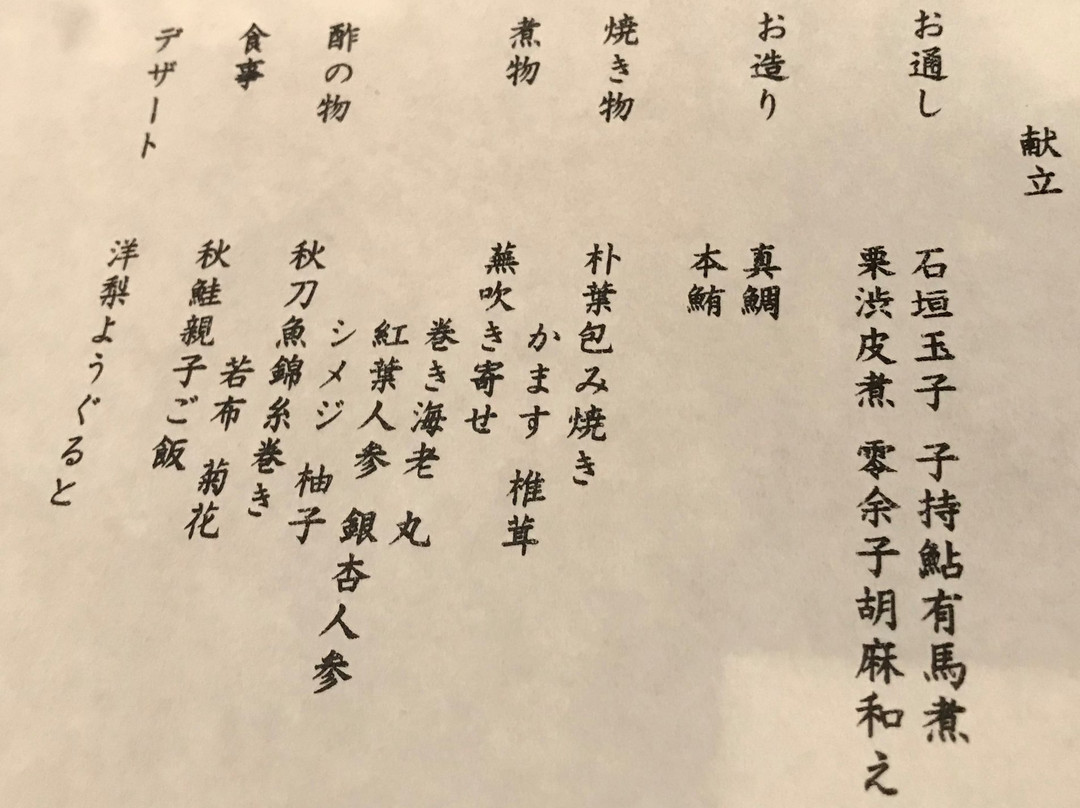 献立
お通し
石垣玉子 子持鮎有馬煮
栗渋皮煮 零余子胡麻和え
お造り
真鯛
本鮪
焼き物
朴葉包み焼き
かます 椎茸
煮物
蕪吹き寄せ
巻き海老 丸
紅葉人参 銀杏人参
シメジ 柚子
酢の物
秋刀魚錦糸巻き
若布 菊花
食事
秋鮭親子ご飯
デザート
洋梨ようぐると